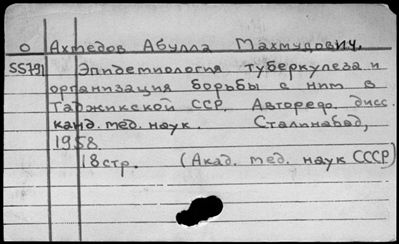 О Ахмедов Абулла Махмудович.
55791 Эпидемиология туберкулеза и
организация борьбы с ним в
Таджикской ССР. Автореф. дисс.
канд. мед. наук. Сталинабад,
1958.
18стр. (Акад. мед. наук СССР)